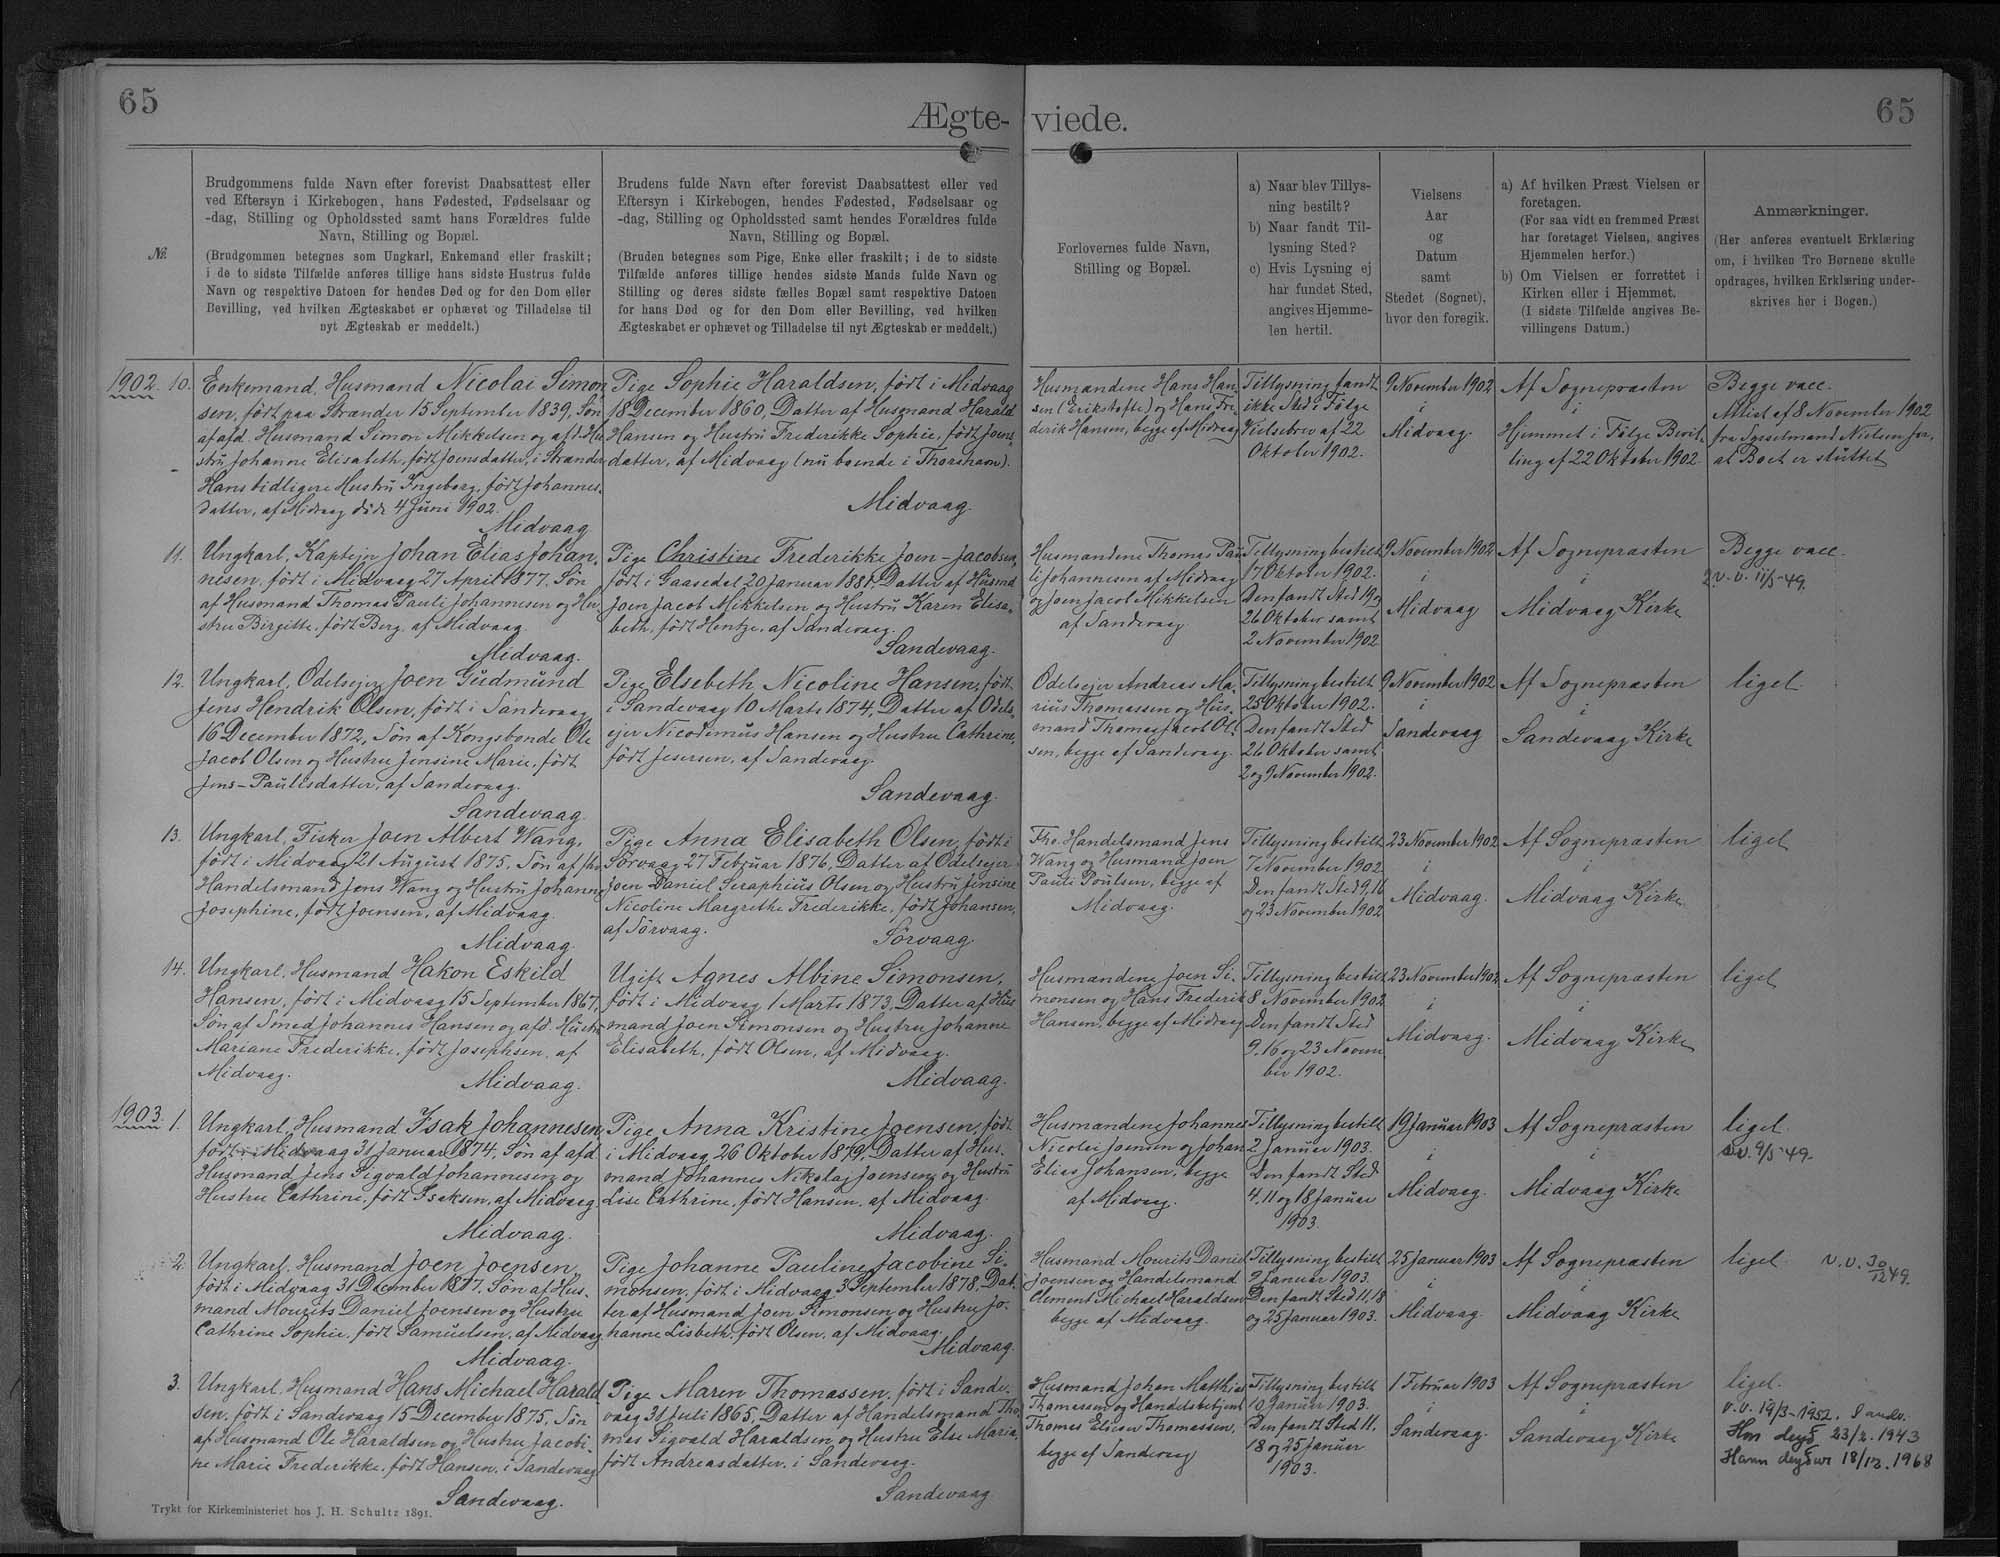 65
Ægte-
viede.
65
№
Brudgommens fulde Navn efter forevist Daabsattest eller
ved Eftersyn i Kirkebogen, hans Fødested, Fødselsaar og
-dag, Stilling og Opholdssted samt hans Forældres fulde
Navn, Stilling og Bopæl.
(Brudgommen betegnes som Ungkarl, Enkemand eller fraskilt;
i de to sidste Tilfælde anføres tillige hans sidste Hustrus fulde
Navn og respektive Datoen for hendes Død og for den Dom eller
Bevilling, ved hvilken Ægteskabet er ophævet og Tilladelse til
nyt Ægteskab er meddelt.)
Brudens fulde Navn efter forevist Daabsattest eller ved
Eftersyn i Kirkebogen, hendes Fødested, Fødselsaar og
-dag, Stilling og Opholdssted samt hendes Forældres fulde
Navn, Stilling og Bopæl.
(Bruden betegnes som Pige, Enke eller fraskilt; i de to sidste
Tilfælde anføres tillige hendes sidste Mands fulde Navn og
Stilling og deres sidste fælles Bopæl samt respektive Datoen
for hans Død og for den Dom eller Bevilling, ved hvilken
Ægteskabet er ophævet og Tilladelse til nyt Ægteskab er meddelt.)
Forlovernes fulde Navn,
Stilling og Bopæl.
a) Naar blev Tillys-
ning bestilt?
b) Naar fandt Til-
lysning Sted?
c) Hvis Lysning ej
har fundet Sted,
angives Hjemme-
len hertil.
Vielsens
Aar
og
Datum
samt
Stedet (Sognet),
hvor den foregik.
a) Af hvilken Præst Vielsen er
foretagen.
(For saa vidt en fremmed Præst
har foretaget Vielsen, angives
Hjemmelen herfor.)
b) Om Vielsen er forrettet i
Kirken eller i Hjemmet.
(I sidste Tilfælde angives Be-
villingens Datum.)
Anmærkninger.
(Her anføres eventuelt Erklæring
om, i hvilken Tro Børnene skulle
opdrages, hvilken Erklæring under-
skrives her i Bogen.)
1902. 10.
Enkemand, Husmand Nicolai Simon
sen, født paa Strænder 15 September 1839, Søn
af afd. Husmand Simon Mikkelsen og afd. Hu
stru Johanne Elisabeth, født Joensdatter, i Strænder
Hans tidligere Hustru Ingeborg, født Johannes-
datter, af Midvaag døde 4 Juni 1902.
Midvaag
Pige Sophie Haraldsen, født i Midvaag
18 December 1860, Datter af Husmand Harald
Hansen og Hustru Frederikke Sophie, født Joens-
datter, af Midvaag (nu boende i Thorshavn).
Midvaag.
Husmændene Hans Han-
sen (Erikstofte) og Hans Fre-
derik Hansen, begge af Midvaag
Tillysning fandt
ikke Sted i Følge
Kielsebrev af 22
Oktober 1902.
9 November 1902
i
Midvaag
Af Sognepræsten
i
Hjemmet i Følge Bevil-
ling af 22 Oktober 1902
Begge vacc.
Attest af 8 November 1902
fra Sysselmand Nielsen for,
at Boet er sluttet
11.
Ungkarl, Kaptejn Johan Elias Johan-
nesen, født i Midvaag 27 April 1877. Søn
af Husmand Thomas Pauli Johannesen og Hu-
stru Birgitte, født Berg, af Midvaag
Midvaag.
Pige Christine Frederikke Joen-Jacobsen,
født i Gaasedal 20 Januar 1881, Datter af Husmd
Joen Jacob Mikkelsen og Hustru Karen Elisa-
beth, født Hentze, af Sandevaag.
Sandevaag.
Husmændene Thomas Pau
li Johannesen af Midvaag
og Joen Jacob Mikkelsen
af Sandevaag
Tillysning bestilt
17 Oktober 1902.
Den fandt Sted 19 og
26 Oktober samt
2 November 1902
9 November 1902
i
Midvaag
Af Sognepræsten
i
Midvaag Kirke
Begge vacc.
v. v. 11/5-49.
12.
Ungkarl, Odelsejer Joen Gudmund
Jens Hendrik Olsen, født i Sandevaag
16 December 1872, Søn af Kongsbonde Ole
Jacob Olsen og Hustru Jensine Marie, født
Jens-Paulisdatter, af Sandevaag.
Sandevaag
Pige Elsebeth Nicoline Hansen, født
i Sandevaag 10 Marts 1874, Datter af Odels-
ejer Nicodemus Hansen og Hustru Cathrine,
født Jesersen, af Sandevaag.
Sandevaag.
Odelsejer Andreas Ma-
rius Thomassen og Hus-
mand Thomas Jacob Ol-
sen, begge af Sandevaag.
Tillysning bestilt
25 Oktober 1902.
Den fandt Sted
26 Oktober samt
2 og 9 November 1902.
9 November 1902
i
Sandevaag
Af Sognepræsten
i
Sandevaag Kirke
ligel.
13.
Ungkarl, Fisker Joen Albert Wang,
født i Midvaag 21 August 1875, Søn af fhv.
Handelsmand Jens Wang og Hustru Johanne
Josephine, født Joensen, af Midvaag.
Midvaag
Pige Anna Elisabeth Olsen, født i
Sörvaag 27 Februar 1876, Datter af Odelsejer
Joen Daniel Seraphius Olsen og Hustru Jensine
Nicoline Margrethe Frederikke, født Johansen,
af Sörvaag.
Sörvaag.
Fhv. Handelsmand Jens
Wang og Husmand Joen
Pauli Poulsen, begge af
Midvaag.
Tillysning bestilt
7 November 1902
Den fandt Sted 9, 16
og 23 November 1902
23 November 1902
i
Midvaag.
Af Sognepræsten
i
Midvaag Kirke
ligel
14.
Ungkarl, Husmand Hakon Eskild
Hansen, født i Midvaag 15 September 1867,
Søn af Smed Johannes Hansen og afd. Hustru
Mariane Frederikke, født Josephsen, af
Midvaag.
Midvaag.
Ugift Agnes Albine Simonsen,
født i Midvaag 1 Marts 1873, Datter af Hus
mand Joen Simonsen og Hustru Johanne
Elisabeth, født Olsen, af Midvaag.
Midvaag.
Husmændene Joen Si-
monsen og Hans Frederik
Hansen, begge af Midvaag
Tillysning bestilt
8 November 1902
Den fandt Sted
9. 16 og 23 Novem
ber 1902.
23 November 1902
i
Midvaag.
Af Sognepræsten
i
Midvaag Kirke
ligel
1903. 1.
Ungkarl, Husmand Isak Johannesen,
født i Midvaag 31 Januar 1874, Søn af afd
Husmand Jens Sigvald Johannesen og
Hustru Cathrine, født Isaksen, af Midvaag.
Midvaag.
Pige Anna Kristine Joensen, født
i Midvaag 26 Oktober 1879, Datter af Hus-
mand Johannes Nikolaj Joensen og Hustru
Lise Cathrine, født Hansen, af Midvaag.
Midvaag.
Husmændene Johannes
Nicolai Joensen og Johan
Elias Johansen, begge
af Midvaag.
Tillysning bestilt
2 Januar 1903.
Den fandt Sted
4. 11 og 18 Januar
1903.
19 Januar 1903
i
Midvaag.
Af Sognepræsten
i
Midvaag Kirke
ligel.
v.v. 9/5-49.
2.
Ungkarl, Husmand Joen Joensen,
født i Midvaag 31 December 1877. Søn af Hus-
mand Mourits Daniel Joensen og Hustru
Cathrine Sophie, født Samuelsen, af Midvaag
Midvaag.
Pige Johanne Pauline Jacobine Si-
monsen, født i Midvaag 3 September 1878, Dat-
ter af Husmand Joen Simonsen og Hustru Jo-
hanne Lisbeth, født Olsen, af Midvaag.
Midvaag.
Husmand Mourits Daniel
Joensen og Handelsmand
Clement Michael Haraldsen
begge af Midvaag.
Tillysning bestilt
9 Januar 1903.
Den fandt Sted 11, 18
og 25 Januar 1903.
25 Januar 1903
i
Midvaag
Af Sognepræsten
i
Midvaag Kirke
ligel v. v. 30/12 49.
3.
Ungkarl, Husmand Hans Michael Harald
sen, født i Sandevaag 15 December 1875, Søn
af Husmand Ole Haraldsen og Hustru Jacobi-
ne Marie Frederikke, født Hansen, i Sandevaag
Sandevaag.
Pige Maren Thomassen, født i Sande-
vaag 31 Juli 1865, Datter af Handelsmand Tho
mas Sigvald Haraldsen og Hustru Else Maria,
født Andreasdatter, i Sandevaag.
Sandevaag
Husmand Johan Matthias
Thomassen og Handelsbetjent
Thomas Eliesen Thomassen,
begge af Sandevaag
Tillysning bestilt
10 Januar 1903.
Den fandt Sted 11.
18 og 25 Januar
1903.
1 Februar 1903
i
Sandevaag.
Af Sognepræsten
i
Sandevaag Kirke
ligel.
v.v. 19/3-1952. Sandv.
Hon deyð 23/2. 1943
Hann deyður 18/12. 1968
Trykt for Kirkeministeriet hos J. H. Schultz 1891.